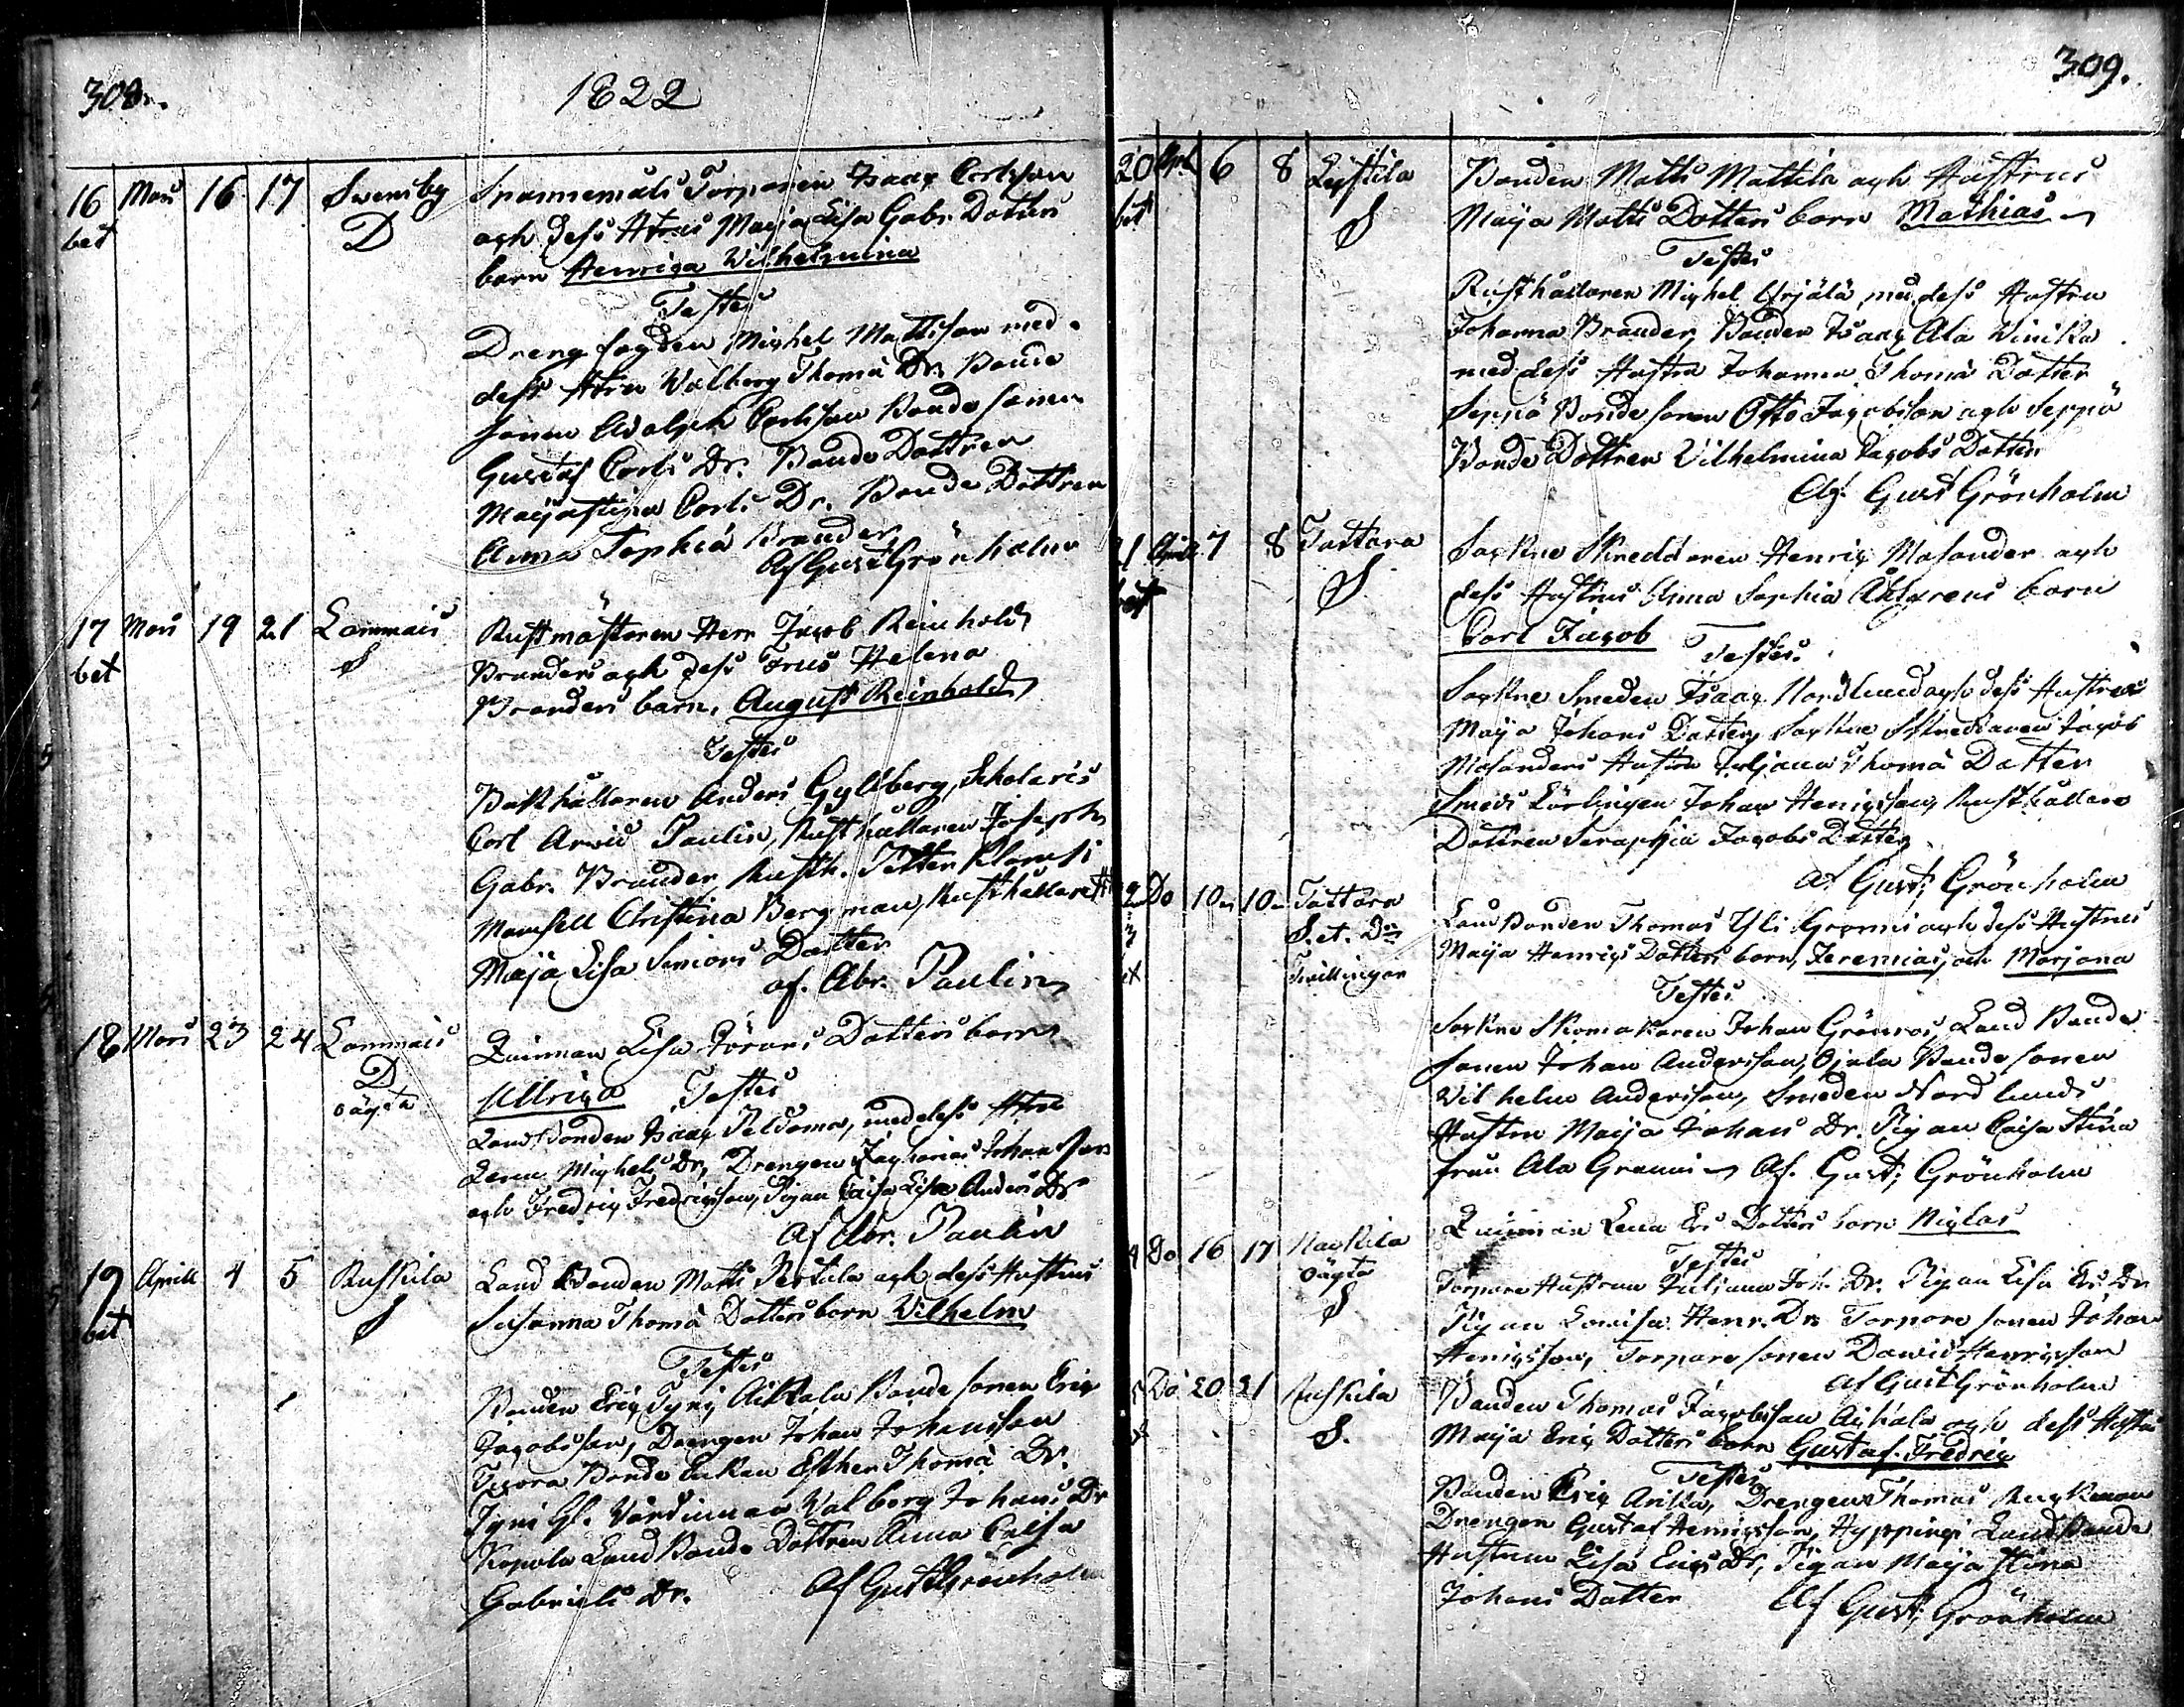 308.
1822
16 Mars 16 17 Svensby Spannemåls Torparen Isaac Carlsson
bet D och dess Hustrus Maja Lisa Gabr. Dotters
barn Henrica Vilhelmina
Testes
Dreng fogden Michel Mattsson med
dess Hustru Valborg Thomæ Dr. Bonde
sonen Adolph Carlsson Bonde sonen
Gustaf Carls Dr. Bonde Dottren
Majastina Carls Dr. Bonde Dottren
Anna Sophia Brander
Af Gust Grönholm
17 Mars 19 21 Lammais Rustmästaren Herr Jacob Reinhold
bet S Branders och dess Frus Helena
Branders barn, August Reinhold
Testes
Bokhållaren Anders Gyldberg, Scholaris
Carl Arvid Paulin, Rusthållaren Joseph
Gabr. Brander, Rusth. Petter
Mamsell Christina Bergman, Rusthållare
Maja Lisa Simons Dotter
af. Abr. Paulin
18 Mars 23 24 Lammais Quinnan Lisa Görans Dotters barn
D Ullrica Testes
oägta
Landbonden Isaac Peldoma, med dess Hustru
Lena Michels Dr, Drengen Zacharias Johansson
och Fredric Fredricsson, Pigan Caisa Lisa Anders Dr
Af Abr. Paulin
19 Aprill 4 5 Ruskila Land Bonden Matts Pertula och dess Hustrus
bet S Susanna Thomæ Dotters barn Vilhelm
Testes
Bonden Eric Tyni, Aikkala Bonde sonen Eric
Jacobsson, Drengen Johan Johansson
Bonde Enkan Esther Thomæ Dr.
Tyni Gl. Värdinnan Valborg Johans Dr
Kopola Land Bonde Dottren Anna Caisa
Gabriels Dr. Af Gust Grönholm
309.
20 Aprl 6 8 Leistila Bonden Matts Mattila och Hustrus
bet S Maja Matts Dotters barn Mathias
Testes
Rusthållaren Michel Yrjälä med dess Hustru
Johanna Brander, Bonden Isaac Ala Vinikka
med dess Hustru Johanna Thomæ Dotter
Seppä Bonde sonen Otto Jacobsson och Seppä
Bonde Dottren Vilhelmina Jacobs Dotter
Af. Gust Grönholm
21 Aprill 7 8 Tattara Sockne Skreddaren Henric Masander och
S dess Hustrus Anna Sophia barn
Carl Jacob Testes.
Sockne Smeden Isaac Nordlund och dess Hustru
Maja Johans Dotter, Sockne Skreddaren Jacob
Masanders Hustru Juljana Thomæ Dotter
Smeds Lärlingen Johan Henricsson, Rusthållare
Dottren Seraphia Jacobs Dotter
Af Gust; Grönholm
Do 10 10 Tattara Land Bonden Thomas Yli Grannis och dess Hustrus
S. et. D Maja Henrics Dotters barn, Jeremias, och Marjana
Tvillingar Testes
Sockne Skomakaren Johan Grönroos, Land Bonde
sonen Johan Andersson, Ojala Bonde sonen
Vilhelm Andersson, Smeden Nordlunds
Hustru Maja Johans Dr. Pigan Caisa Stina
från Ala Granni Af. Gust; Grönholm
Do 16 17 Naskila Quinnan Lena Ers Dotters barn Niclas
oägta S Testes
Torpare Hustrun Juljana Joh. Dr. Pigan Lisa Ers Dr
Pigan Lovisa Henr. Dr Torpare sonen Johan
Henricsson, Torpare sonen David Henricsson
Af Gust Grönholm
Do 20 21 Ruskila Bonden Thomas Jacobsson Aikala och dess Hustrus
S. Maja Erics Dotters barn Gustaf Fredric
Testes
Bonden Eric Anikka, Drengen Thomas
Drengen Gustaf Henricsson, Hyppingi Land Bonde
Hustrun Lisa Erics Dr, Pigan Maja Stina
Johans Dotter Af Gust; Grönholm